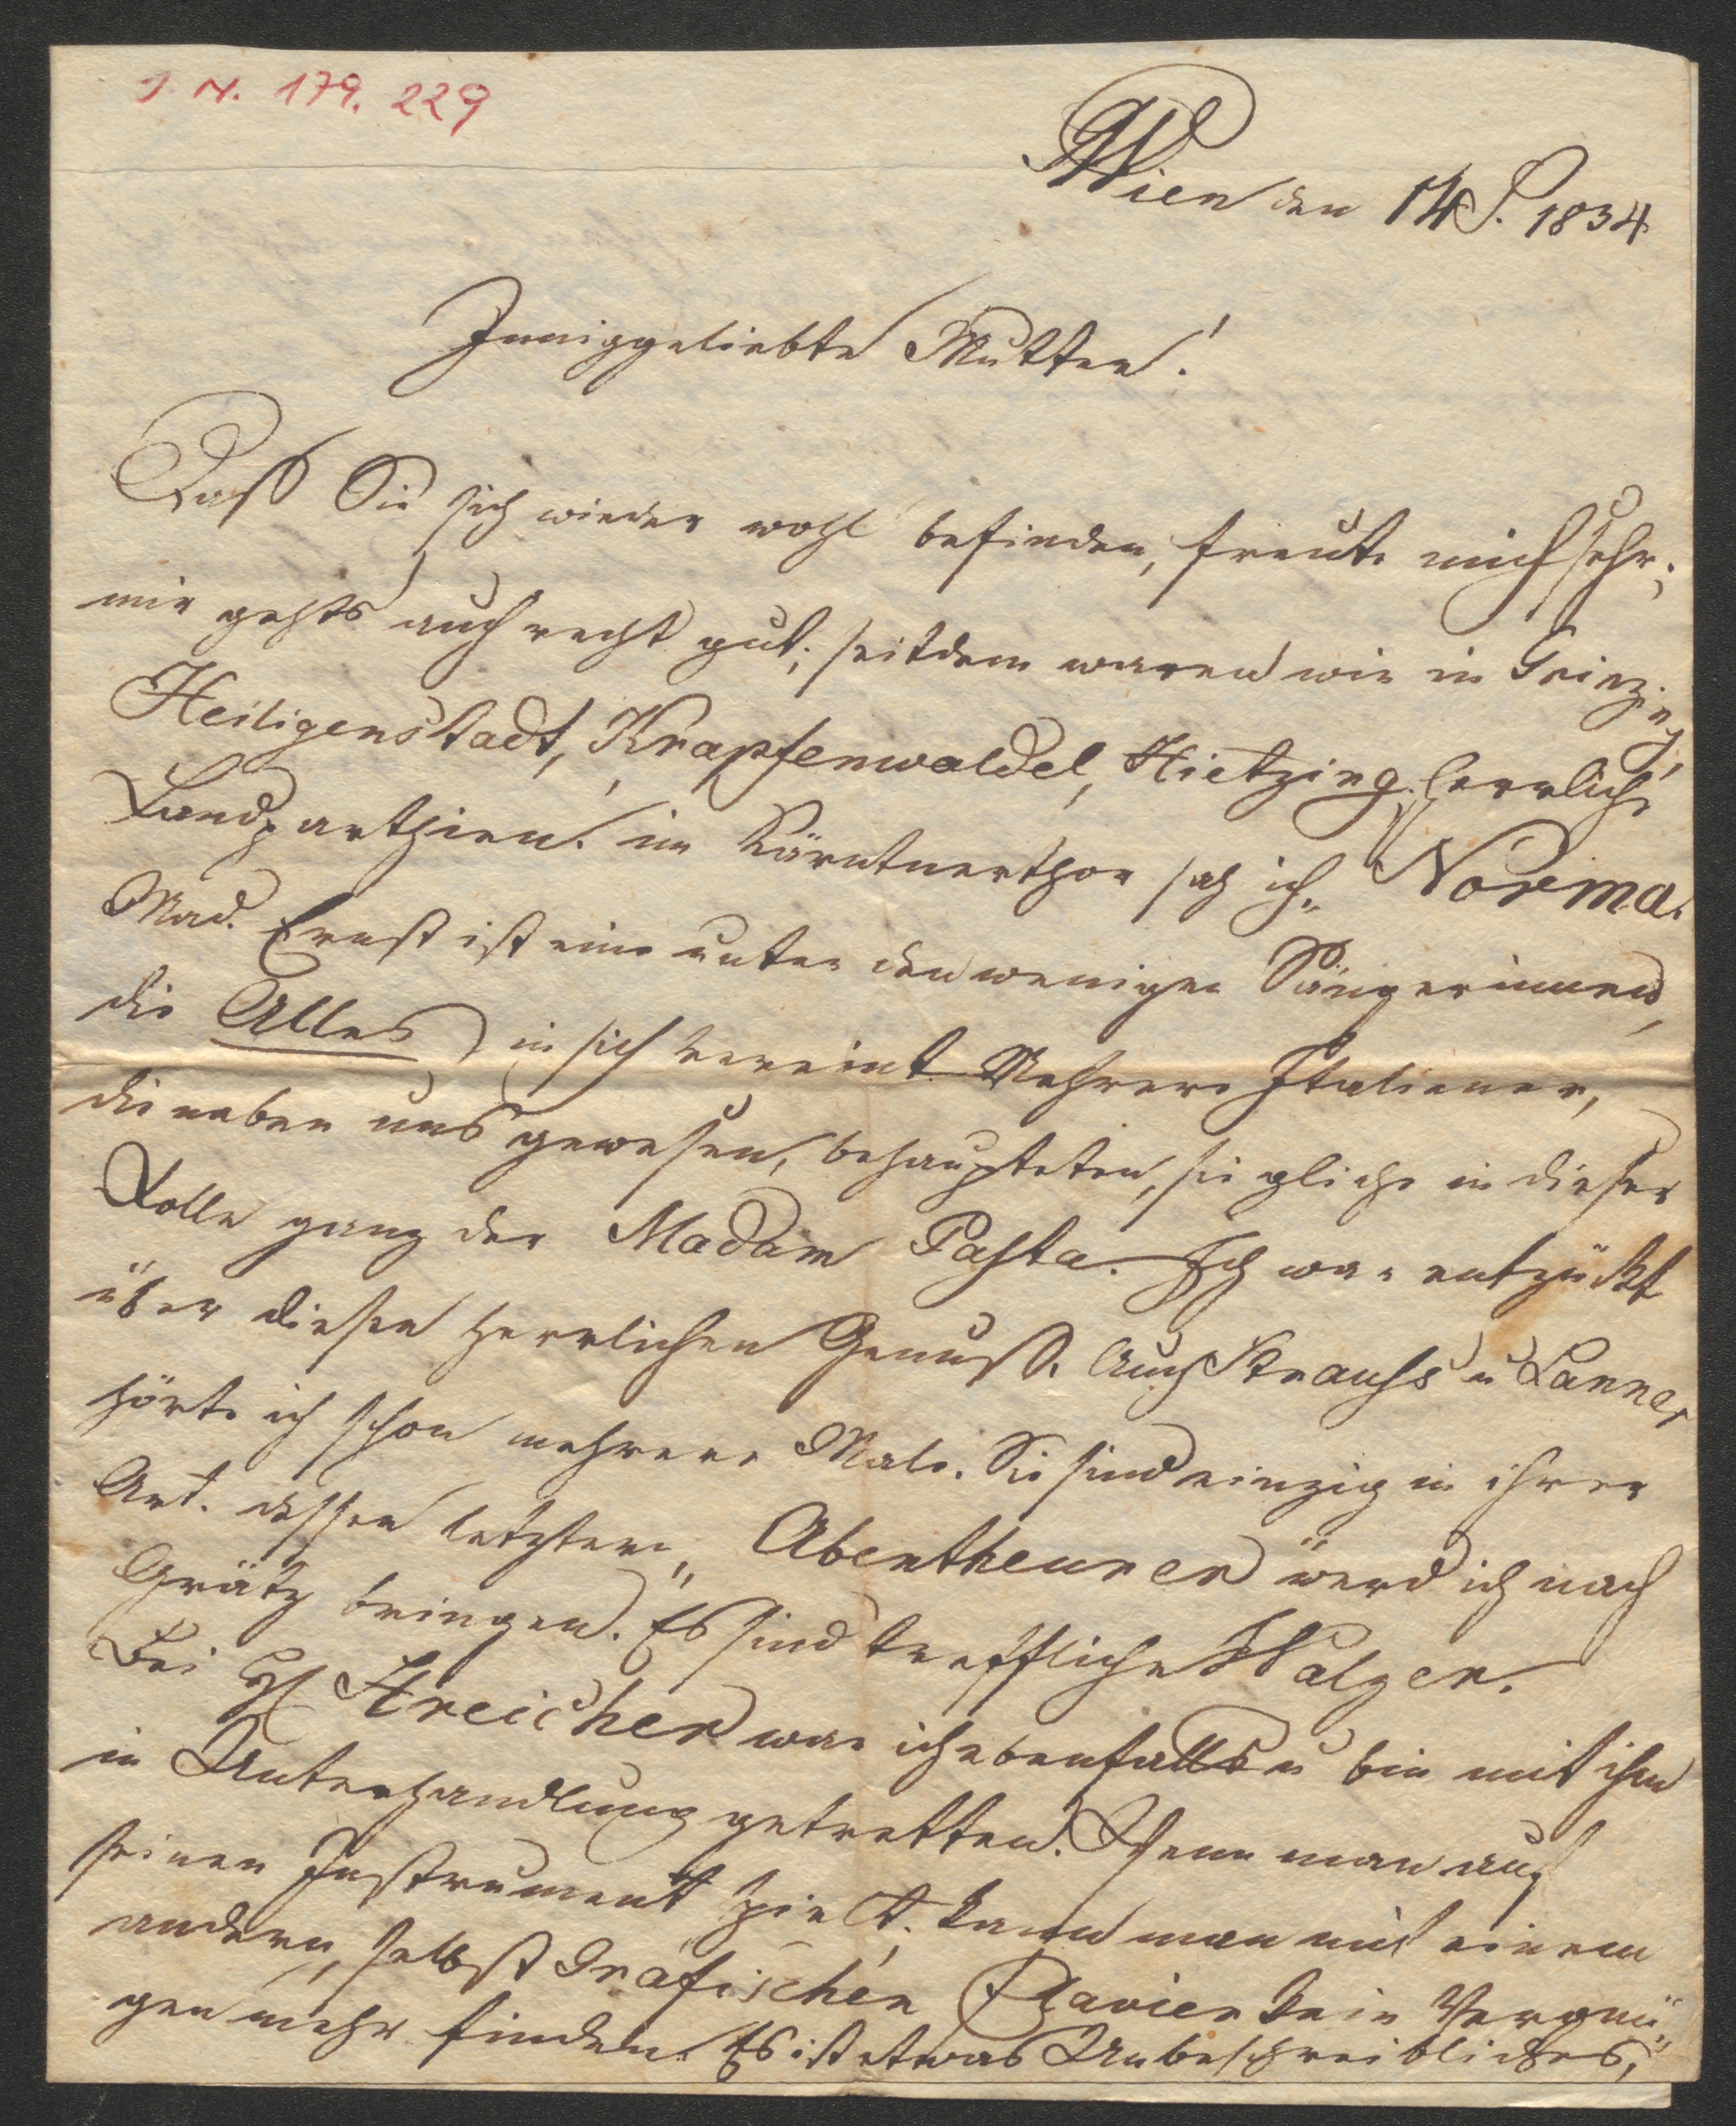 I. N. 179. 229
Wien den 14 S. 1834
Inniggeliebte Mutter!
Daß Sie sich wieder wohl befinden, freute mich sehr;
mir gehts auch recht gut; seitdem waren wir in Grinzing,
Heiligenstadt, Krapfenwaldel, Hietzing. herrliche
Landparthien. im Kärntnerthor sah ich „Norma.
Mad. Ernst ist eine unter den wenigen Sängerinnen,
die Alles in sich vereint. Mehrere Italiener,
die neben uns gewesen, behaupteten, sie gliche in dieser
Rolle ganz der Madam Pasta. Ich war entzückt
über diesen herrlichen Genuß. Auch Strauss u Lanner
hörte ich schon mehrere Male. Sie sind einzig in ihrer
Art. dessen letztern „Abentheurer" werd ich nach
Grätz bringen. Es sind treffliche Walzer.
Bei H Streicher war ich ebenfalls u bin mit ihm
in Unterhandlung getretten. Wenn man auf
seinen Instrument spielt, kann man mit einem
andern, selbst Gräfischen Clavier kein Vergnü„
gen mehr finden. Es ist etwas Unbeschreibliches,